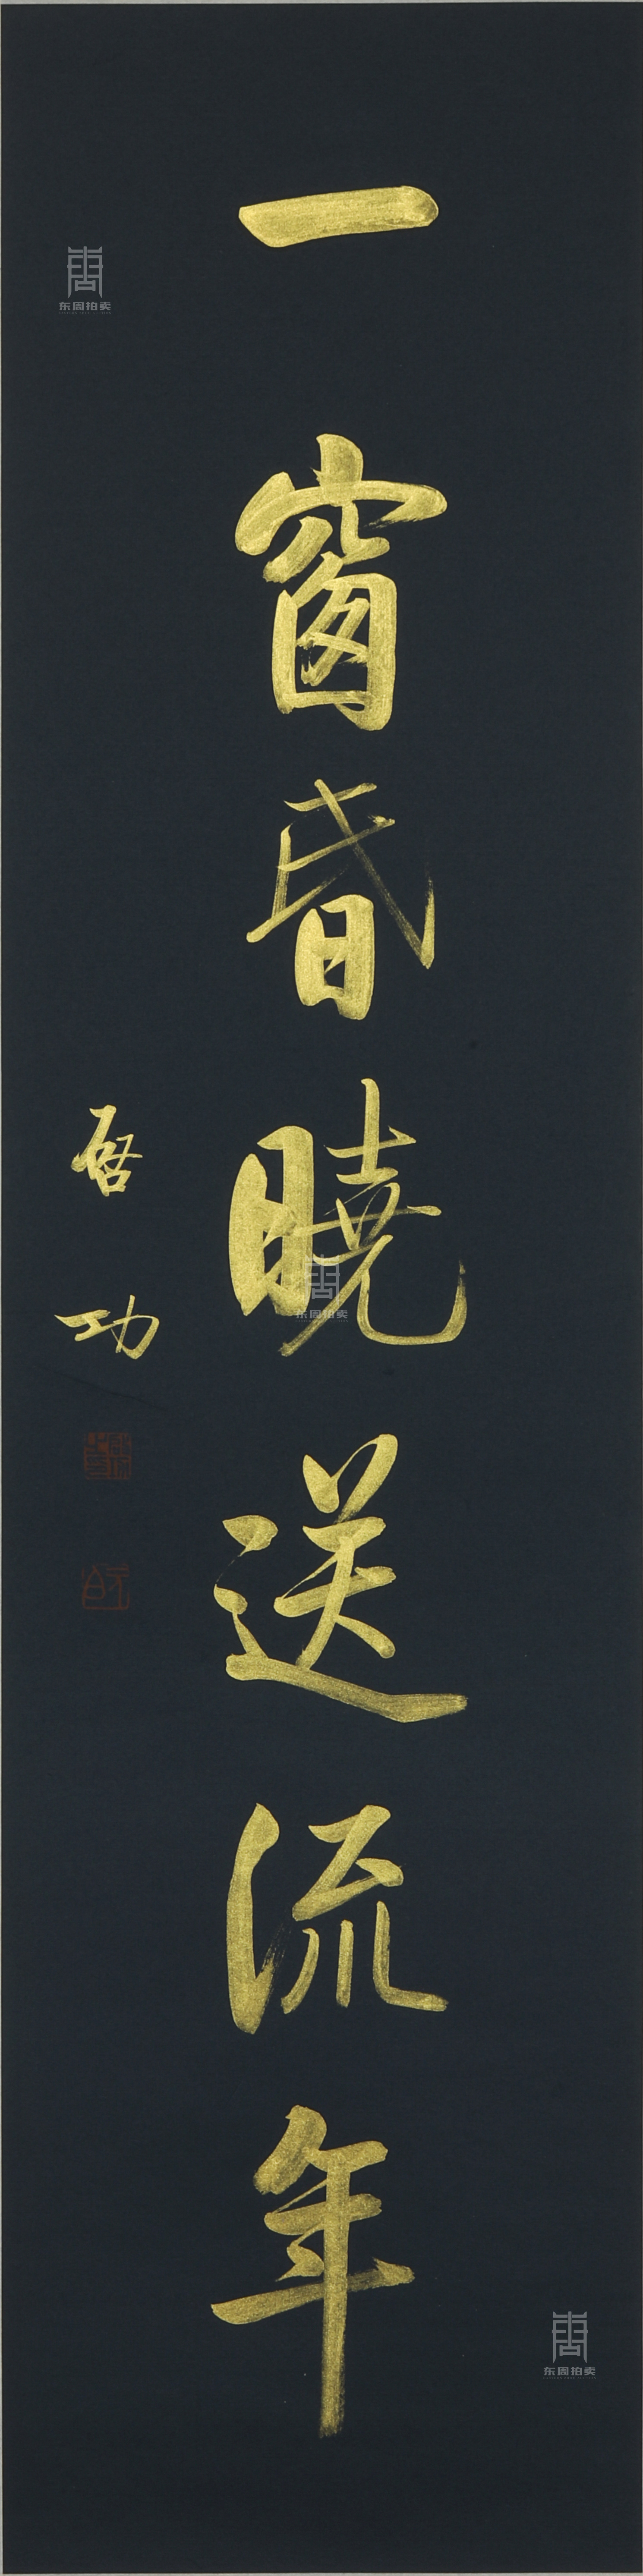 一窗昏曉送流年
启功
东周拍卖
东周拍卖
东周拍卖